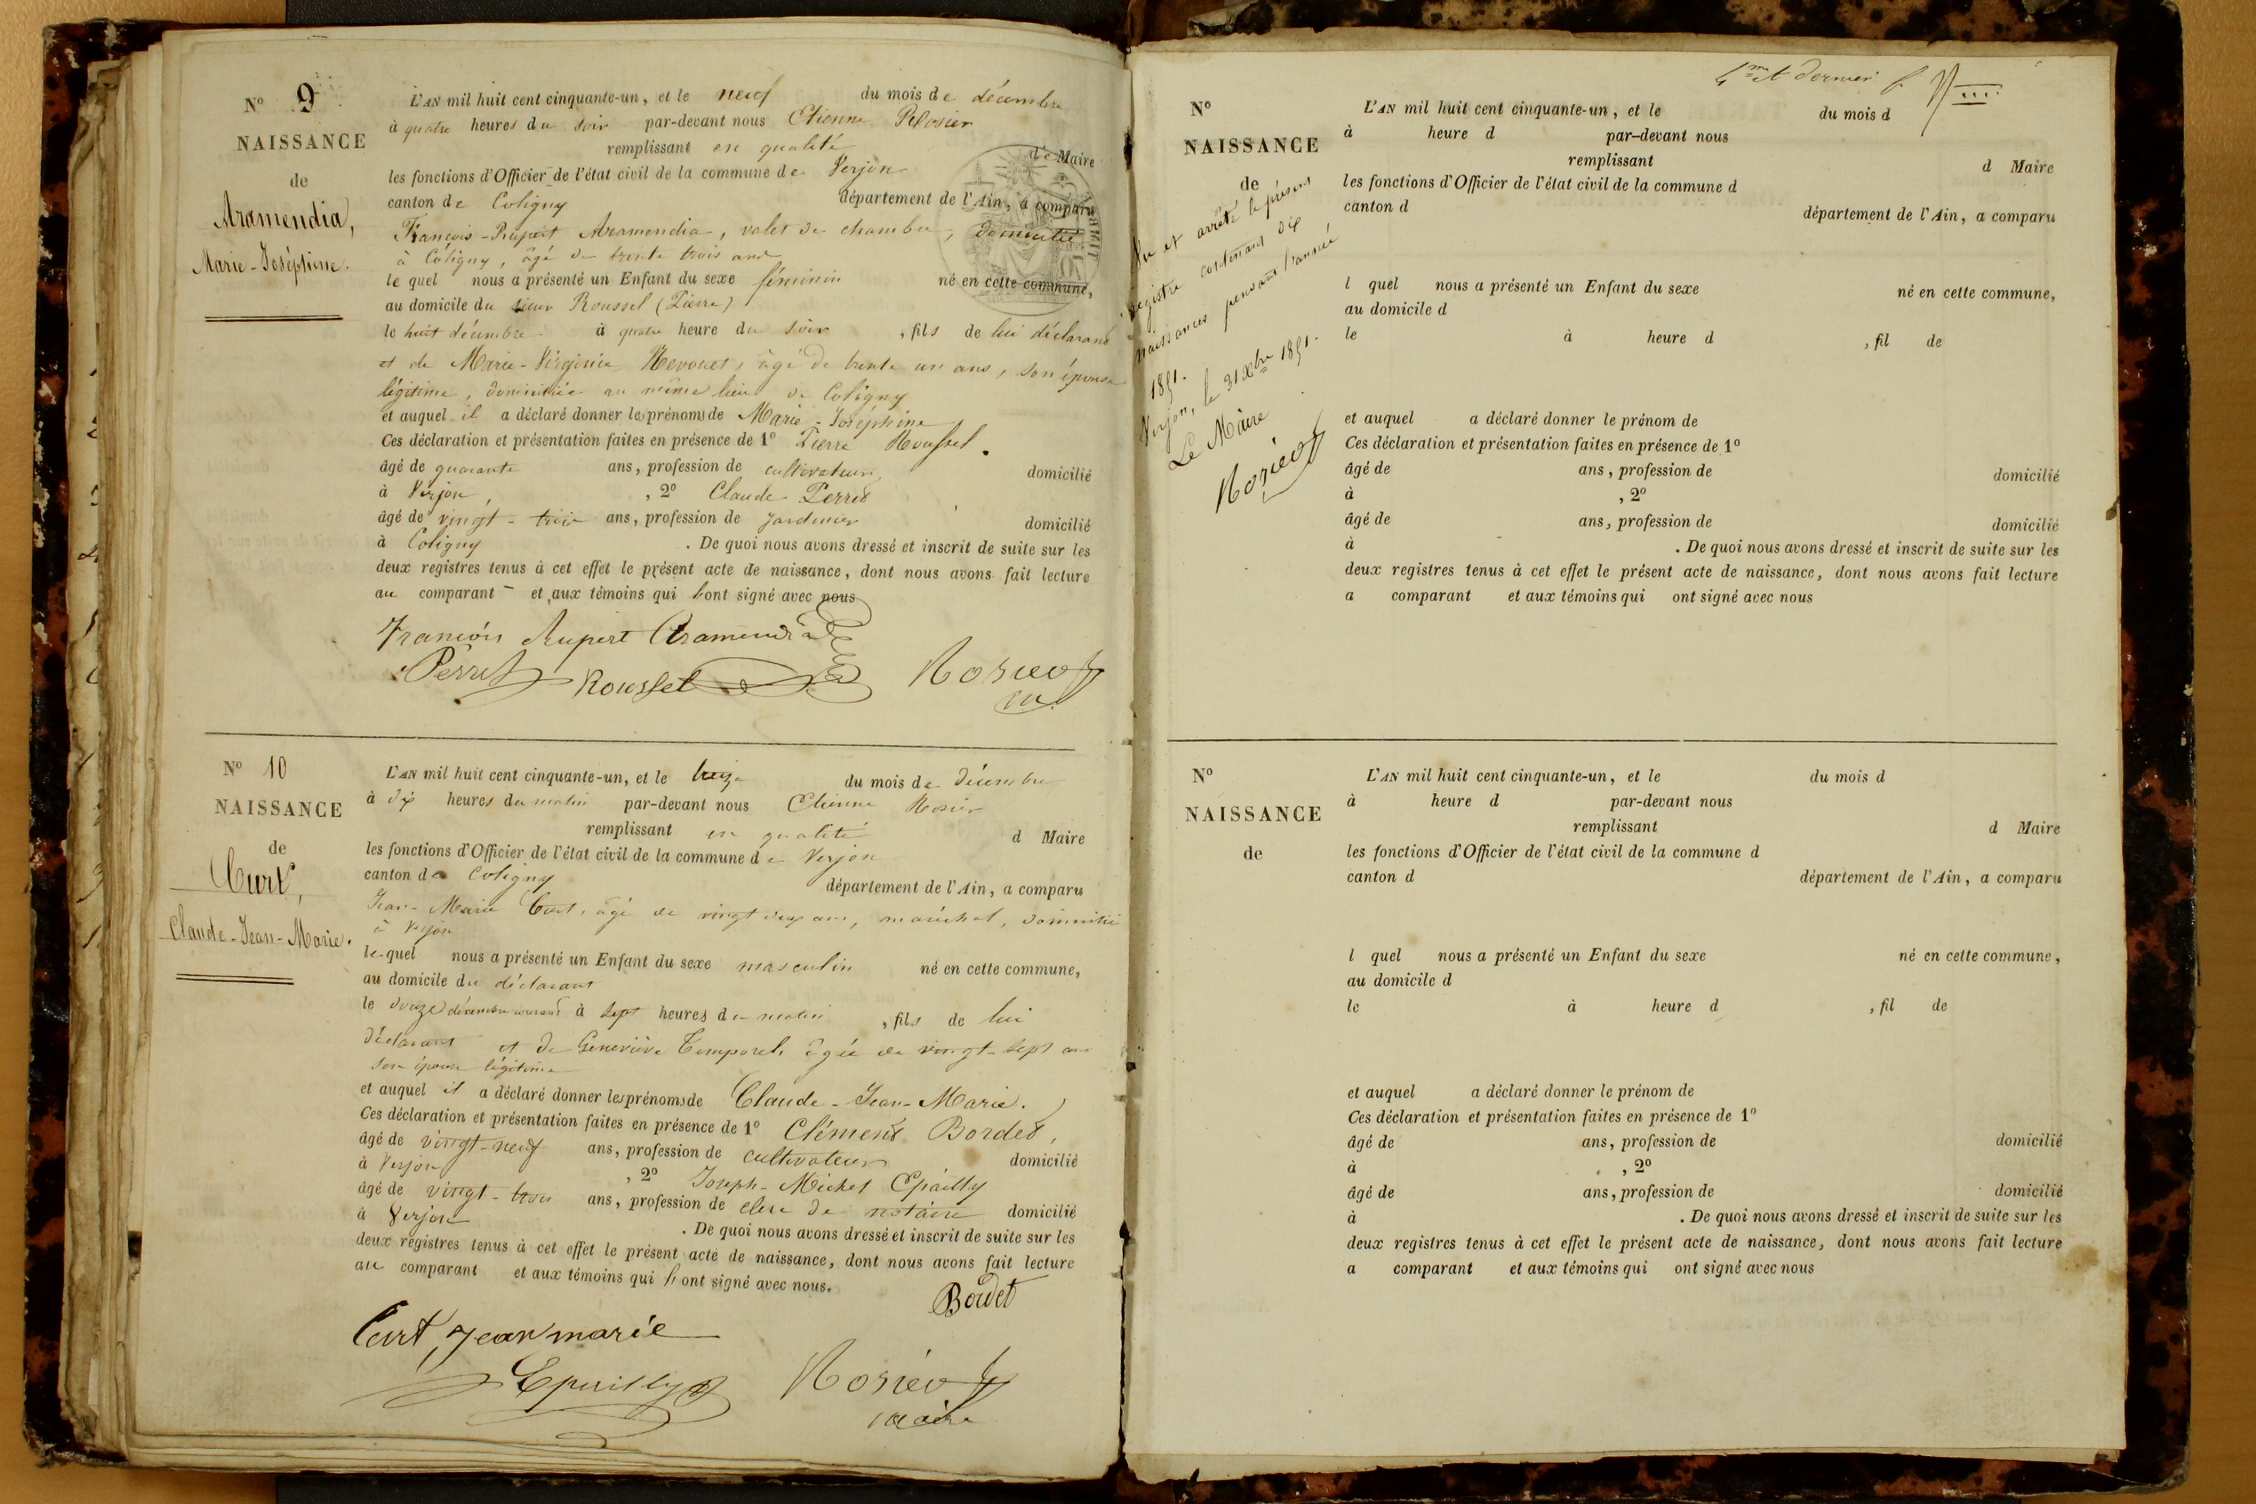 N° 9
NAISSANCE
de
Aramendia,
Marie-Joséphine.
L'AN mil huit cent cinquante-un, et le neuf du mois de décembre
à quatre heures du soir par-devant nous Etienne
remplissant en qualité de Maire
les fonctions d'Officier de l'état civil de la commune de Verjon
canton de Coligny département de l'Ain, a comparu
François-Rupert Aramendia, valet de chambre, domicilié
à Coligny, âgé de trente trois ans
lequel nous a présenté un Enfant du sexe féminin né en cette commune,
au domicile du sieur Roussel (Pierre)
le huit décembre à quatre heure du soir, fils de lui déclarant
et de Marie-Virginie âgé de trente un ans, son épouse
légitime, domiciliée au même lieu de Coligny
et auquel il a déclaré donner les prénoms de Marie-Joséphine
Ces déclaration et présentation faites en présence de 1° Pierre Roussel.
âgé de quarante ans, profession de cultivateur domicilié
à Verjon, , 2° Claude Perret
âgé de vingt-trois ans, profession de jardinier domicilié
à Coligny . De quoi nous avons dressé et inscrit de suite sur les
deux registres tenus à cet effet le présent acte de naissance, dont nous avons fait lecture
au comparant et aux témoins qui l'ont signé avec nous
François Rupert Aramendia
Perret Roussel
N° 10
NAISSANCE
de
Curt,
Claude-Jean-Marie.
L'AN mil huit cent cinquante-un, et le treize du mois de Décembre
à dix heures du matin par-devant nous Etienne
remplissant en qualité d Maire
les fonctions d'Officier de l'état civil de la commune de Verjon
canton de Coligny département de l'Ain, a comparu
Jean-Marie Curt, âgé de vingt deux ans, maréchal, domicilié
à Verjon
lequel nous a présenté un Enfant du sexe masculin né en cette commune,
au domicile du déclarant
le douze décembre courant à sept heures du matin, fils de lui
déclarant et de Geneviève Temporel, âgée de vingt-sept ans
son épouse légitime
et auquel il a déclaré donner les prénoms de Claude-Jean-Marie.
Ces déclaration et présentation faites en présence de 1° Clément Bordet,
âgé de vingt-neuf ans, profession de cultivateur domicilié
à Verjon , 2° Joseph-Michel Epailly
âgé de vingt-trois ans, profession de clerc de notaire domicilié
à Verjon . De quoi nous avons dressé et inscrit de suite sur les
deux registres tenus à cet effet le présent acte de naissance, dont nous avons fait lecture
au comparant et aux témoins qui l'ont signé avec nous.
Bordet
Curt, Jean marie
Epailly
maire
et dernier
Vu et arrêté le présent
registre contenant dix
naissances pendant l'année
1851.
Verjon, le 31 Xbre 1851.
Le Maire
N°
NAISSANCE
de
L'AN mil huit cent cinquante-un, et le du mois d
à heure d par-devant nous
remplissant d Maire
les fonctions d'Officier de l'état civil de la commune d
canton d département de l'Ain, a comparu
l quel nous a présenté un Enfant du sexe né en cette commune,
au domicile d
le à heure d , fil de
et auquel a déclaré donner le prénom de
Ces déclaration et présentation faites en présence de 1°
âgé de ans, profession de domicilié
à , 2°
âgé de ans, profession de domicilié
à . De quoi nous avons dressé et inscrit de suite sur les
deux registres tenus à cet effet le présent acte de naissance, dont nous avons fait lecture
a comparant et aux témoins qui ont signé avec nous
N°
NAISSANCE
de
L'AN mil huit cent cinquante-un, et le du mois d
à heure d par-devant nous
remplissant d Maire
les fonctions d'Officier de l'état civil de la commune d
canton d département de l'Ain, a comparu
l quel nous a présenté un Enfant du sexe né en cette commune,
au domicile d
le à heure d , fil de
et auquel a déclaré donner le prénom de
Ces déclaration et présentation faites en présence de 1°
âgé de ans, profession de domicilié
à , 2°
âgé de ans, profession de domicilié
à . De quoi nous avons dressé et inscrit de suite sur les
deux registres tenus à cet effet le présent acte de naissance, dont nous avons fait lecture
a comparant et aux témoins qui ont signé avec nous